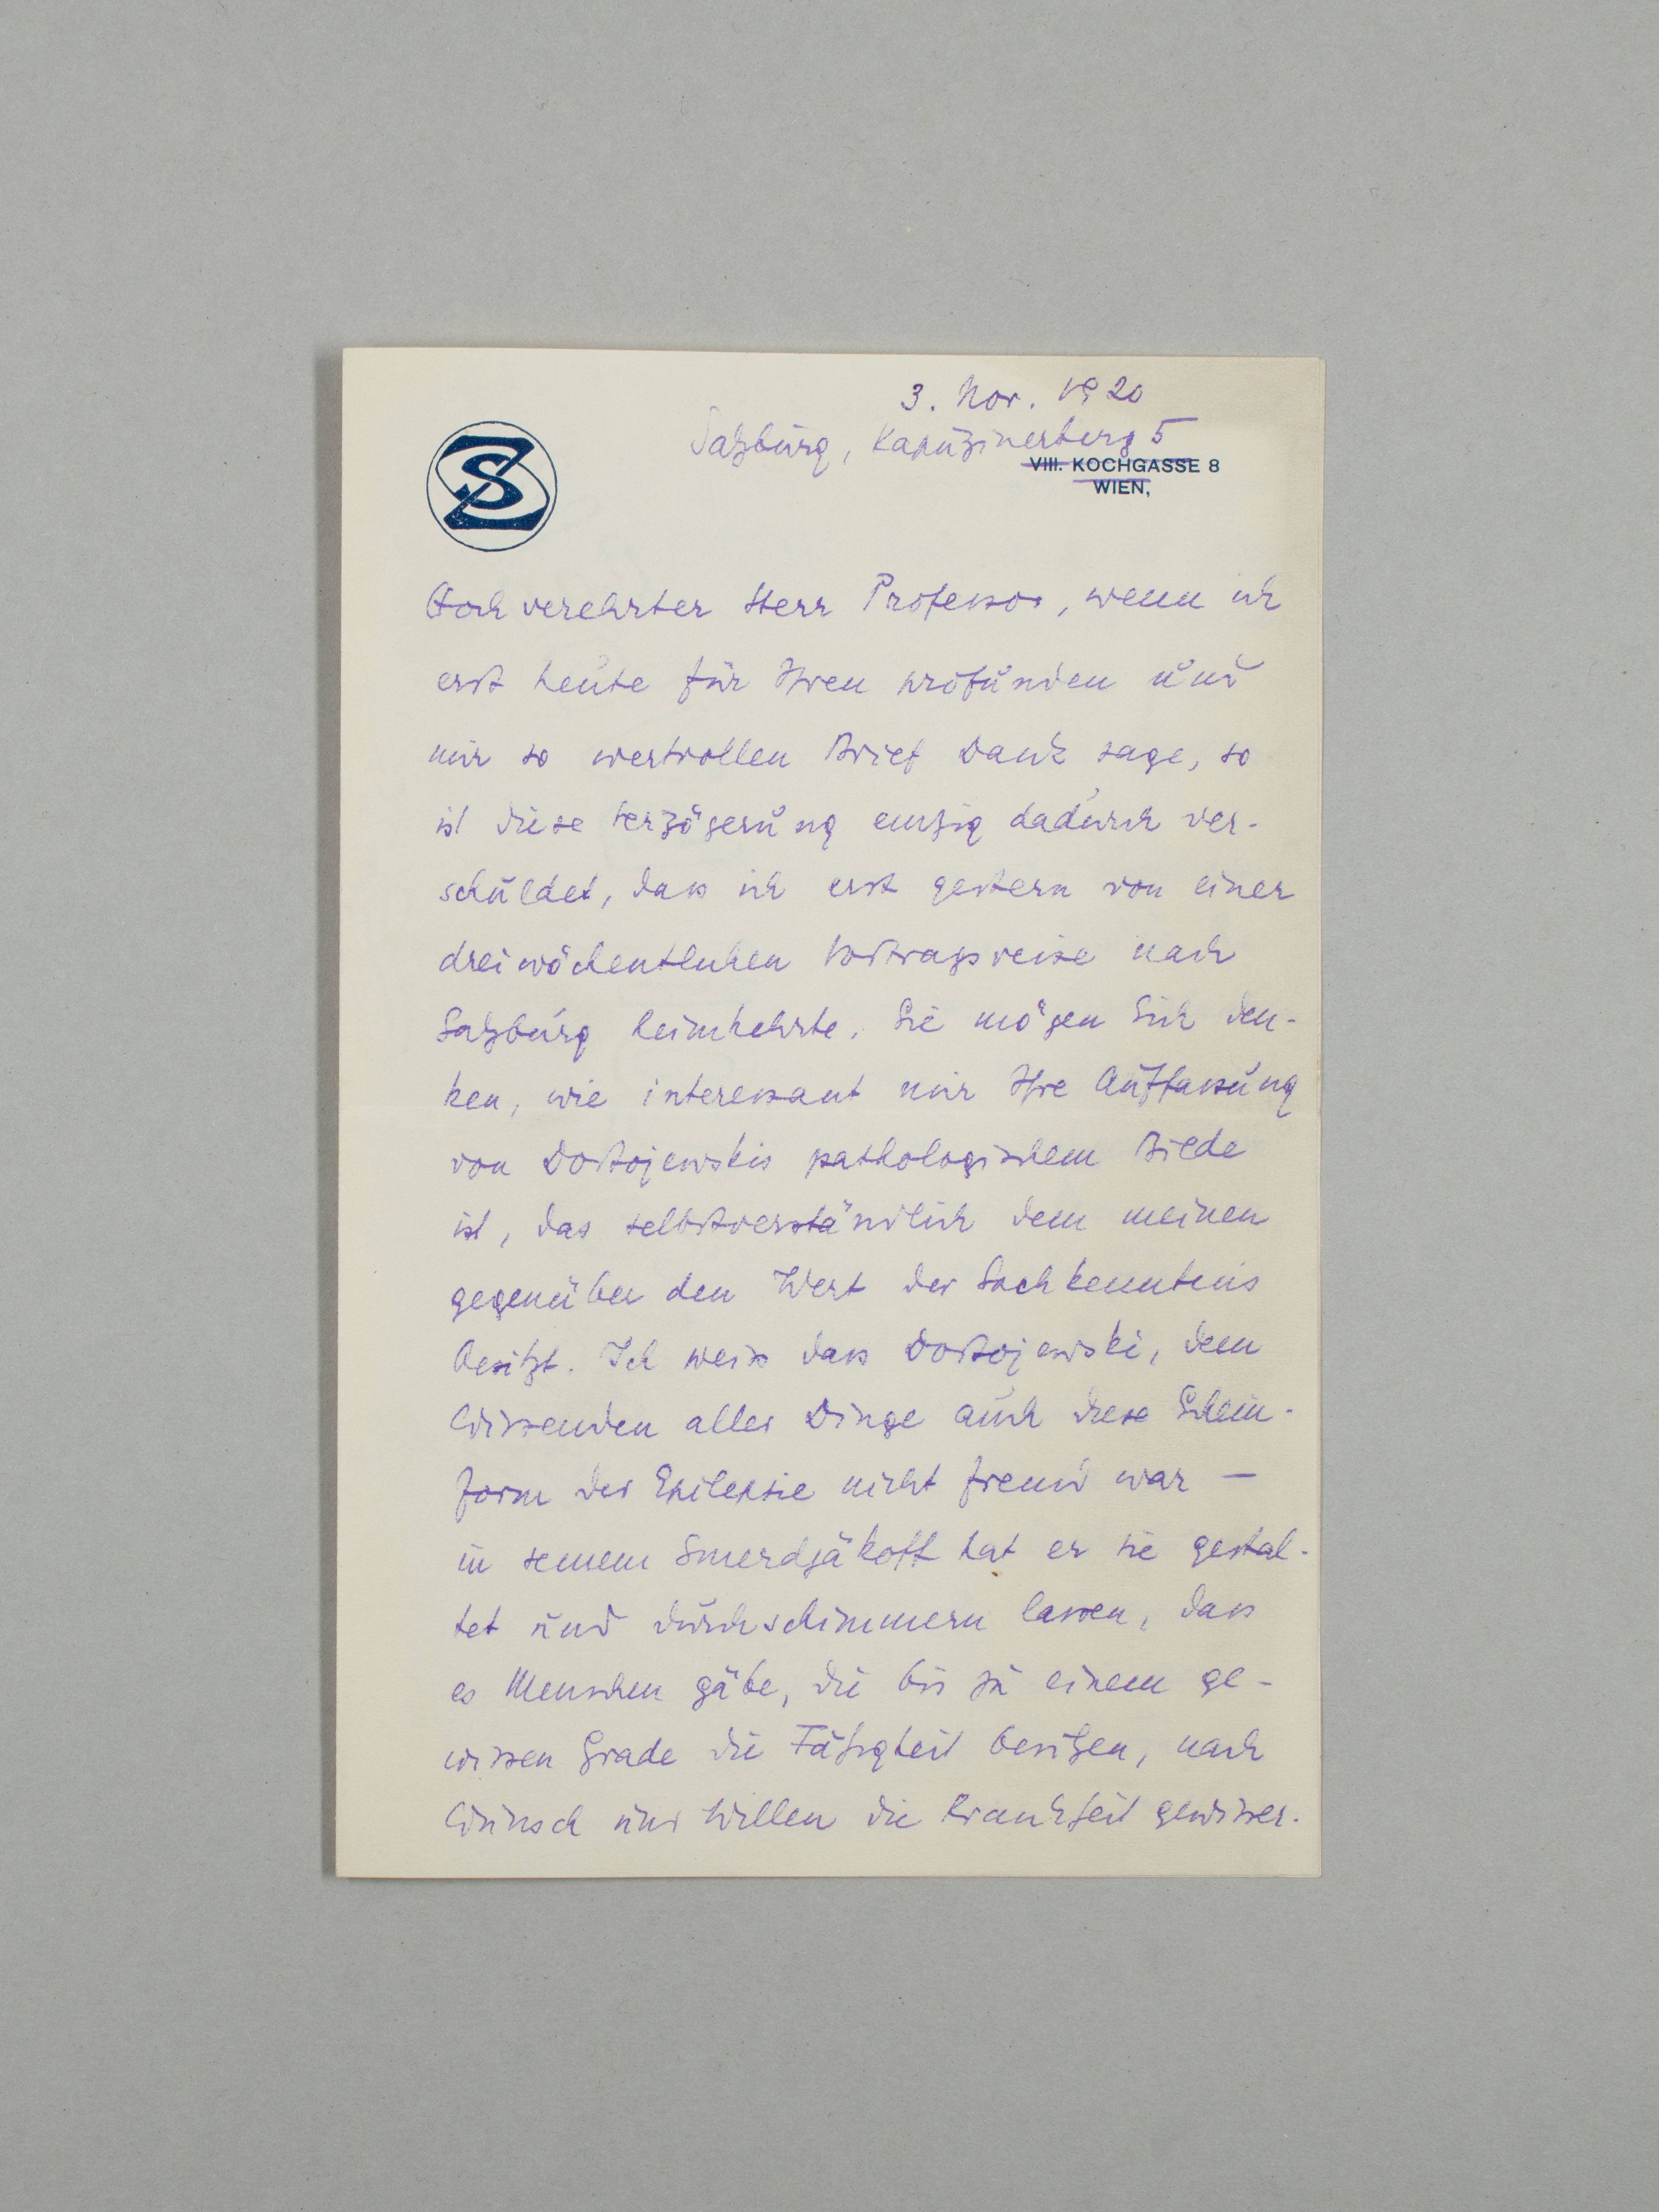 3. Nov. 1920
Salzburg, Kapuzinerberg 5
VIII. KOCHGASSE 8
WIEN,
SZ
Hochverehrter Herr Professor, wenn ich
erst heute für Ihren profunden und
mir so wertvollen Brief Dank sage, so
ist diese Verzögerung einzig dadurch ver-
schuldet, dass ich erst gestern von einer
dreiwöchentlichen Vortragsreise nach
Salzburg heimkehrte. Sie mögen Sich den-
ken, wie interessant mir Ihre Auffassung
von Dostojewskis pathologischem Bilde
ist, das selbstverständlich dem meinen
gegenüber den Wert der Sachkenntnis
besitzt. Ich weiss dass Dostojewski, dem
Wissenden aller Dinge auch diese Schein-
form der Epilepsie nicht fremd war —
in seinem Smerdjäkoff hat er sie gestal-
tet und durchschimmern lassen, dass
es Menschen gäbe, die bis zu einem ge-
wissen Grade die Fähigkeit besitzen, nach
Wunsch und Willen die Krankheit gewisser-